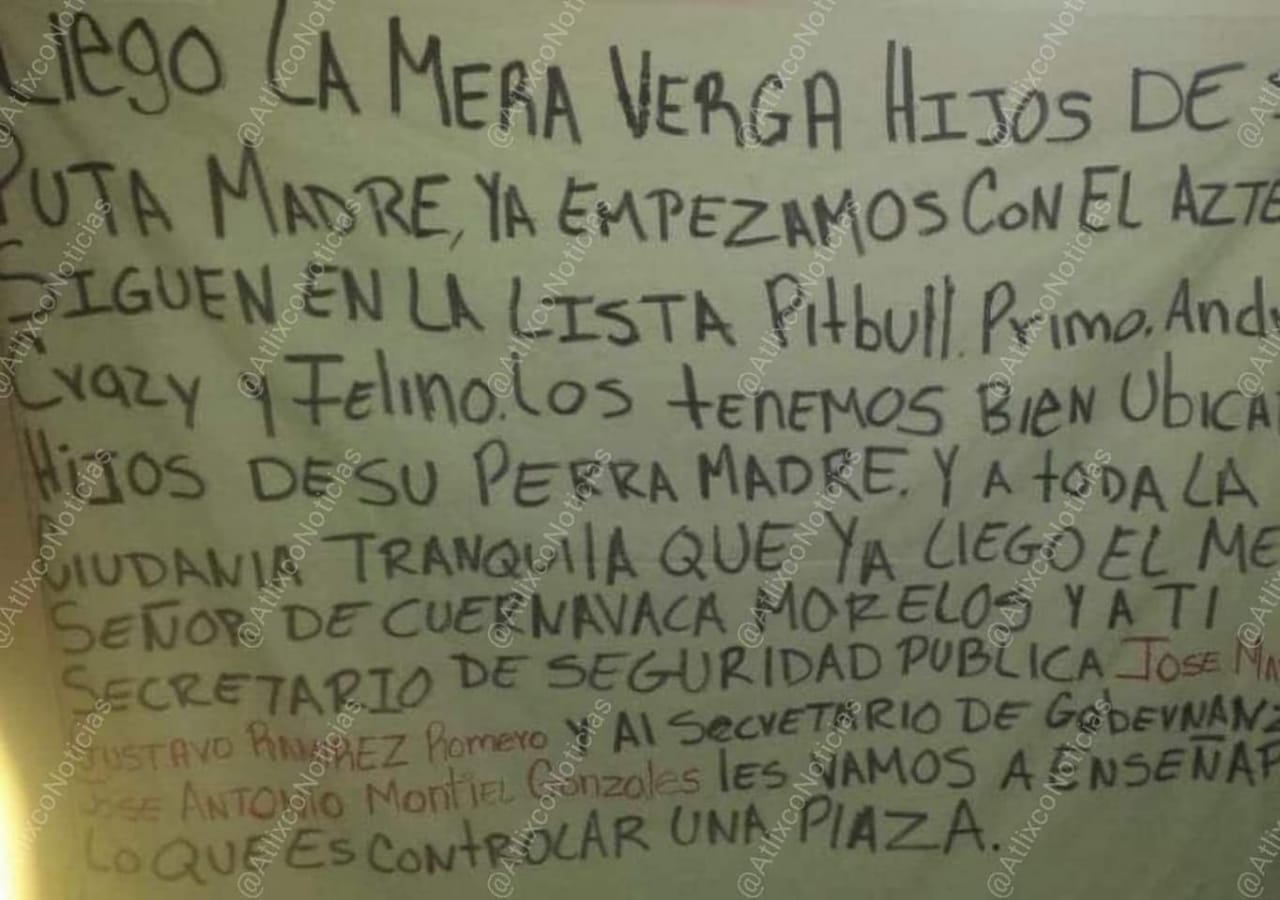 Llego LA MERA VERGA HIJOS DE
PUTA MADRE, YA EMPEZAMOS CON EL AZTE
SIGUEN EN LA LISTA Pitbull. Primo. And
Crazy y Felino. Los tENEMOS BIEN UbICA
HIJOS DE SU PERRA MADRE. Y A toDA LA
CIUDANIA TRANQUIlA QUE YA LlEGO EL ME
SEÑOR DE CUERNAVACA MORELOS Y A TI
SECRETARIO DE SEGURIDAD PUBLICA JOSE
GUSTAVO RAMIREZ Romero Y Al SECrETARIO DE GObErNANZ
JOSE ANTONIO MontiEL Gonzales lES VAMOS A ENSEÑAR
Lo QUE ES CONtROLAR UNA PlAZA.
@AtlixcoNoticias